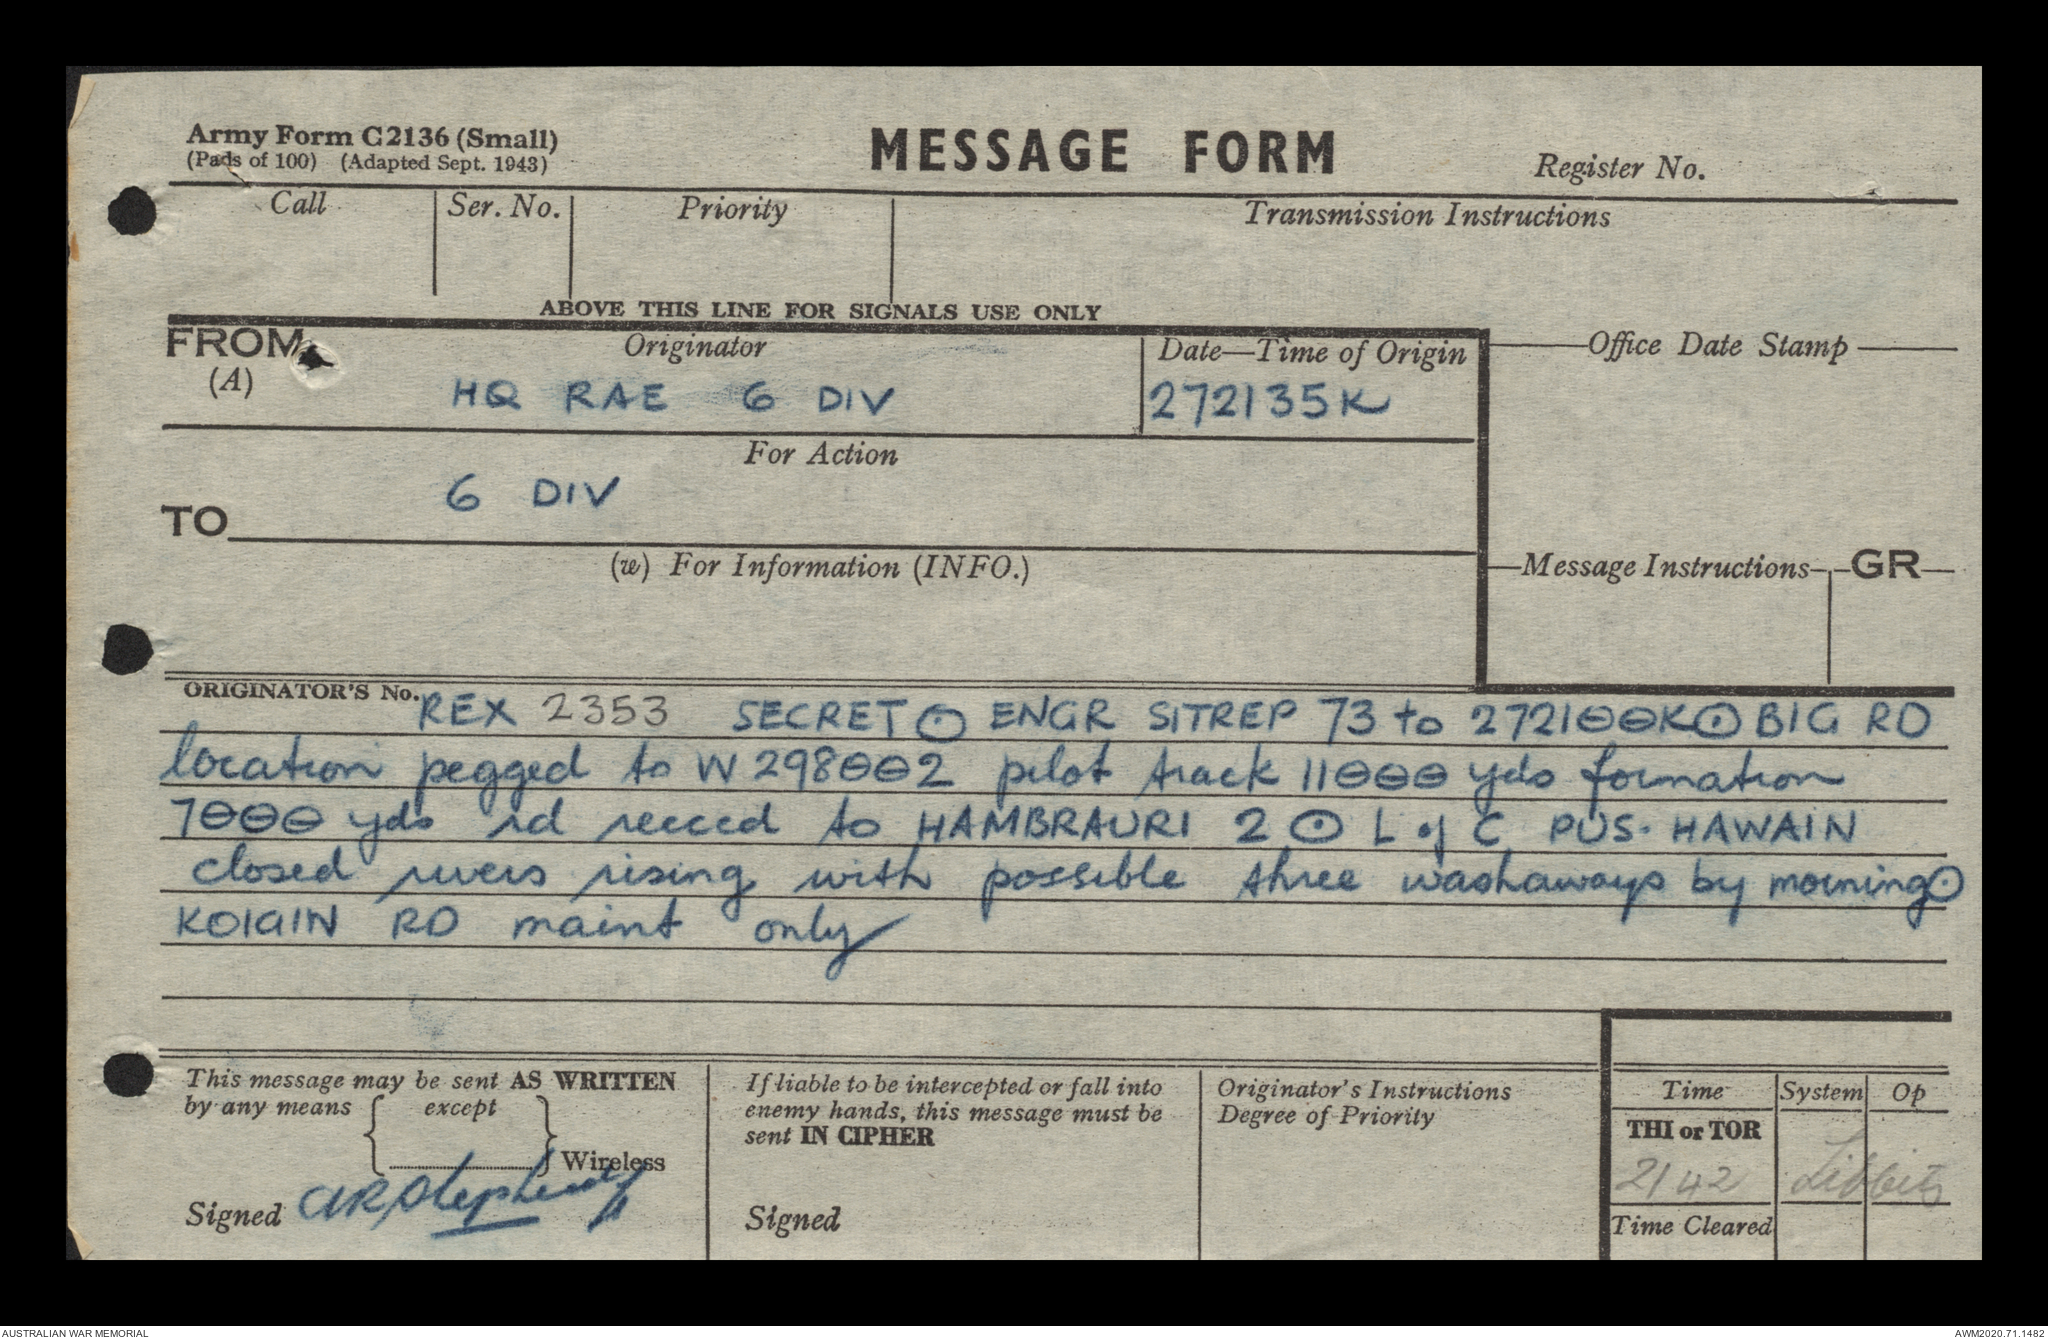 Army Form C2136 (Small)
(Pads of 100) (Adapted Sept. 1943)
MESSAGE FORM
Register No.
Call
Ser. No.
Priority
Transmission Instructions
ABOVE THIS LINE FOR SIGNALS USE ONLY
FROM
(A)
Originator
HQ RAE 6 DIV
Date—Time of Origin
272135K
Office Date Stamp
For Action
6 DIV
TO
(w) For Information (INFO.)
Message Instructions
GR
ORIGINATOR'S No. REX 2353 SECRET ⊙ ENGR SITREP 73 to 272100K ⊙ BIG RD
location pegged to W 298002 pilot track 11000 yds formation
7000 yds rd recced to HAMBRAURI 2 ⊙ L of C PUS-HAWAIN
closed rivers rising with possible three washaways by morning ⊙
KOIGIN RD maint only
This message may be sent AS WRITTEN
by any means { except }
Wireless
Signed
If liable to be intercepted or fall into
enemy hands, this message must be
sent IN CIPHER
Signed
Originator's Instructions
Degree of Priority
Time
System
Op
THI or TOR
2142
Time Cleared
AUSTRALIAN WAR MEMORIAL
AWM2020.71.1482